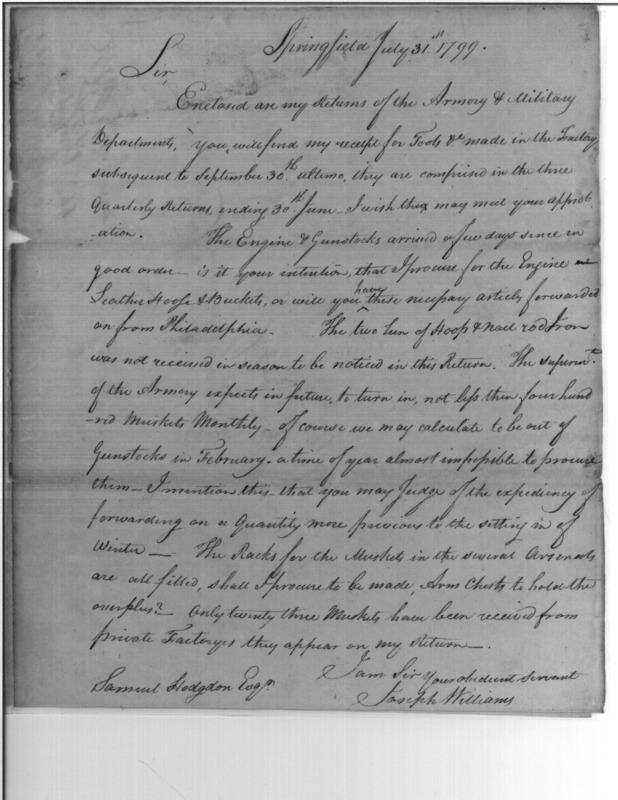 Springfield July 31.st 1799.
Sir,
Enclosed are my Returns of the Armory & Military
Departments, you, will find my receipt for Tools &c made in the Factory
subsequent to September 30th ultimo, they are comprised in the three
Quarterly Returns, ending 30th June – I wish they may meet your approb
-ation. The Engine & Gunstocks arrived a few days since in
good order – is it your intention, that I procure for the Engine
Leather Hoose & Buckets, or will you have these necessary articles forwarded
on from Philadelphia. The two Tun of Hoop & nail rod Iron
was not received in season to be noticed in this Return. The superint.
of the Armory expects in future, to turn in, not less then four hund
-red Muskets Monthly – of course we may calculate to be out of
Gunstocks in February – a time of year almost impossible to procure
them – I mention this – that you may Judge of the expediency of
forwarding on a Quantity more previous to the setting in of
Winter — The Racks for the Muskets in the several Arsenals
are all filled, shall I procure to be made, Arm Chests to hold the
overplus? – Only twenty three Muskets have been received from
private Factoryes they appear on my Return —.
I am Sir Your obedient servant
Samuel Hodgdon Esqr. Joseph Williams